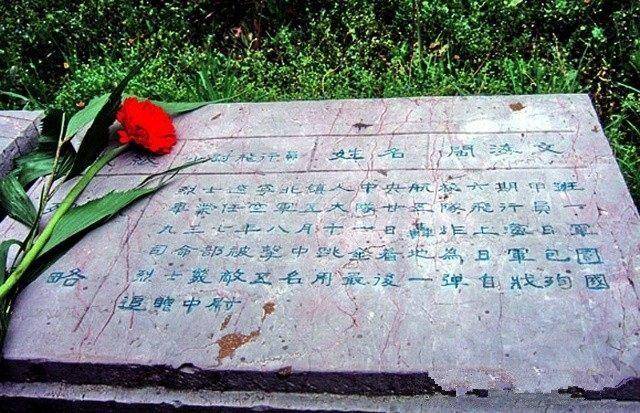 少尉飛行員 姓名 閻海文
烈士遼寧北鎮人中央航校六期甲班
畢業任空軍五大隊廿五隊飛行員一
九三七年八月十一日轟炸上海日軍
司令部被擊中跳傘着地為日軍包圍
略 烈士斃敵五名用最後一彈自戕殉國
追贈中尉